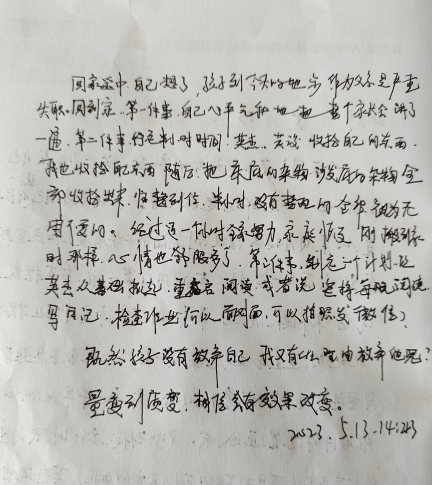 回家途中,自己想了,孩子到今天的地步,作为父亲是严重
失职。回到家,第一件事,自己心平气和地把 家长会讲了
一遍,第二件事,约定制时时间,英杰、英 收拾自己的东西,
我也收拾 东西 随后,把床底的杂物 沙发底的杂物全
部收拾出来,归整到位,半小时,没有整理的全部 为无
用 的。经过这一小时 努力,家庭恢复 刚搬到家
时那样,心情也舒服多了。第三件事,制定一个计划,让
英杰从基础抓起,重 阅读 或者说 坚持每晚阅读
写日记,检查作业可以 面,可以拍照发(微信)
既然孩子没有放弃自己 我又有什么理由放弃他呢?
量变到质变,相信会有效果改变。
2023.5.13-14:43